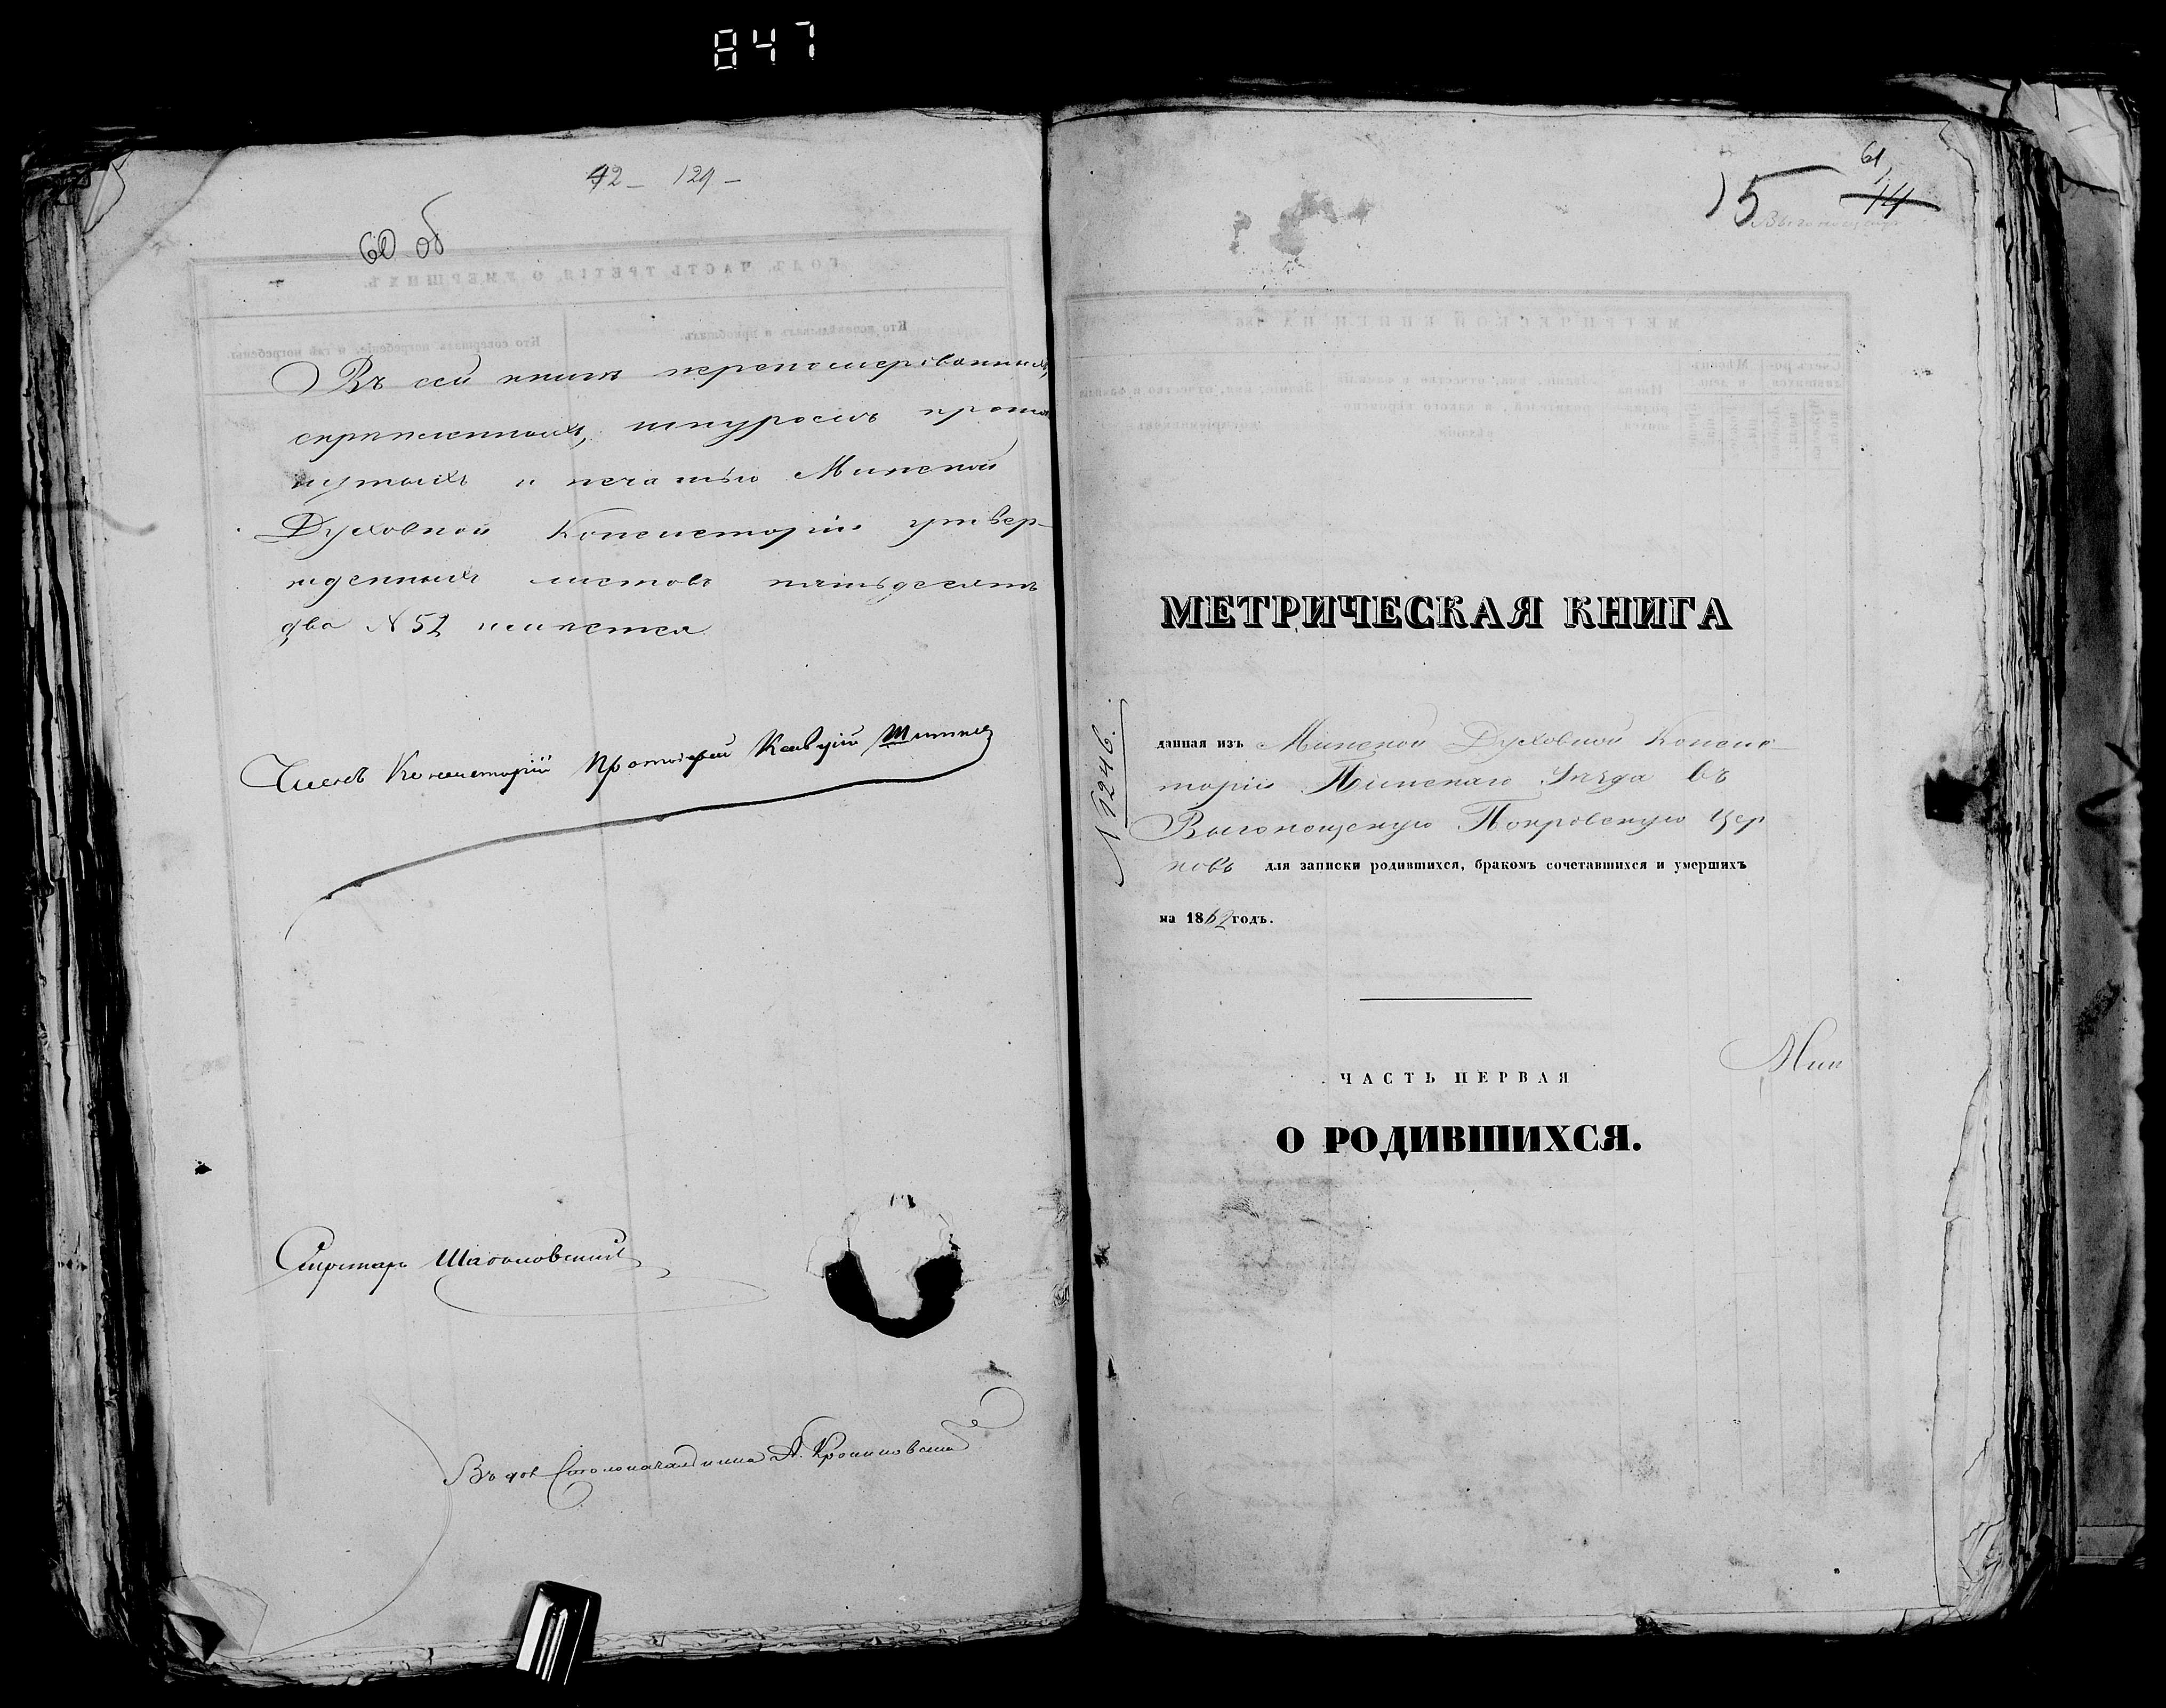 847
42 – 124 –
60 об
Въ сей книгѣ перенумерованныхъ,
скрѣпленныхъ, шнуромъ протя
нутыхъ и печатью Минской
Духовной Консисторіи утвер-
жденныхъ листовъ пятьдесятъ
два № 52 имѣется
Членъ Консисторіи Протоіерей
Секретарь
Въ дол Столоначальника А.
61
15 14
МЕТРИЧЕСКАЯ КНИГА
№ 1246.
данная изъ Минской Духовной Консис-
торіи Пинскаго Уѣзда въ
Выгонощскую Покровскую Цер
ковь для записки родившихся, бракомъ сочетавшихся и умершихъ
на 1862 годъ.
ЧАСТЬ ПЕРВАЯ
Мин
О РОДИВШИХСЯ.